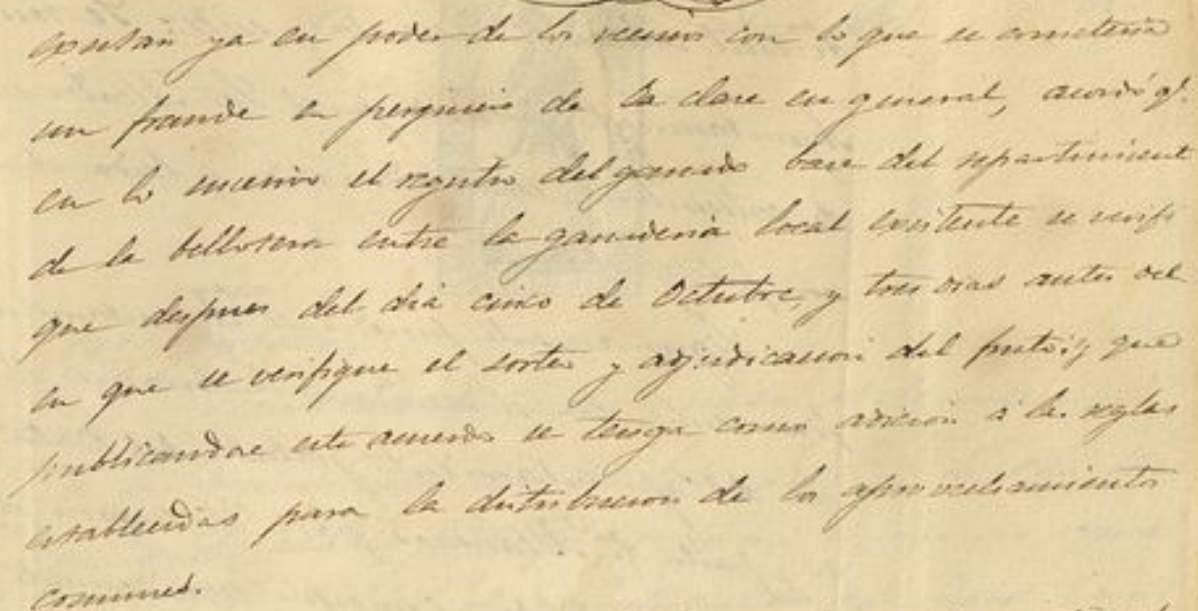 existan ya en poder de los vecinos con lo que se cometeria
un fraude en perjuicio de la clase en general, acordó q.
en lo sucesivo el registro del ganado base del repartimient
de la bellotera entre la ganaderia local existente se verifi
que despues del dia cinco de Octubre, y tres dias antes del
en que se verifique el sorteo y adjudicacion del fruto; y que
publicandose este acuerdo se tenga como adicion á las reglas
establecidas para la distribucion de los aprovechamientos
comunes.